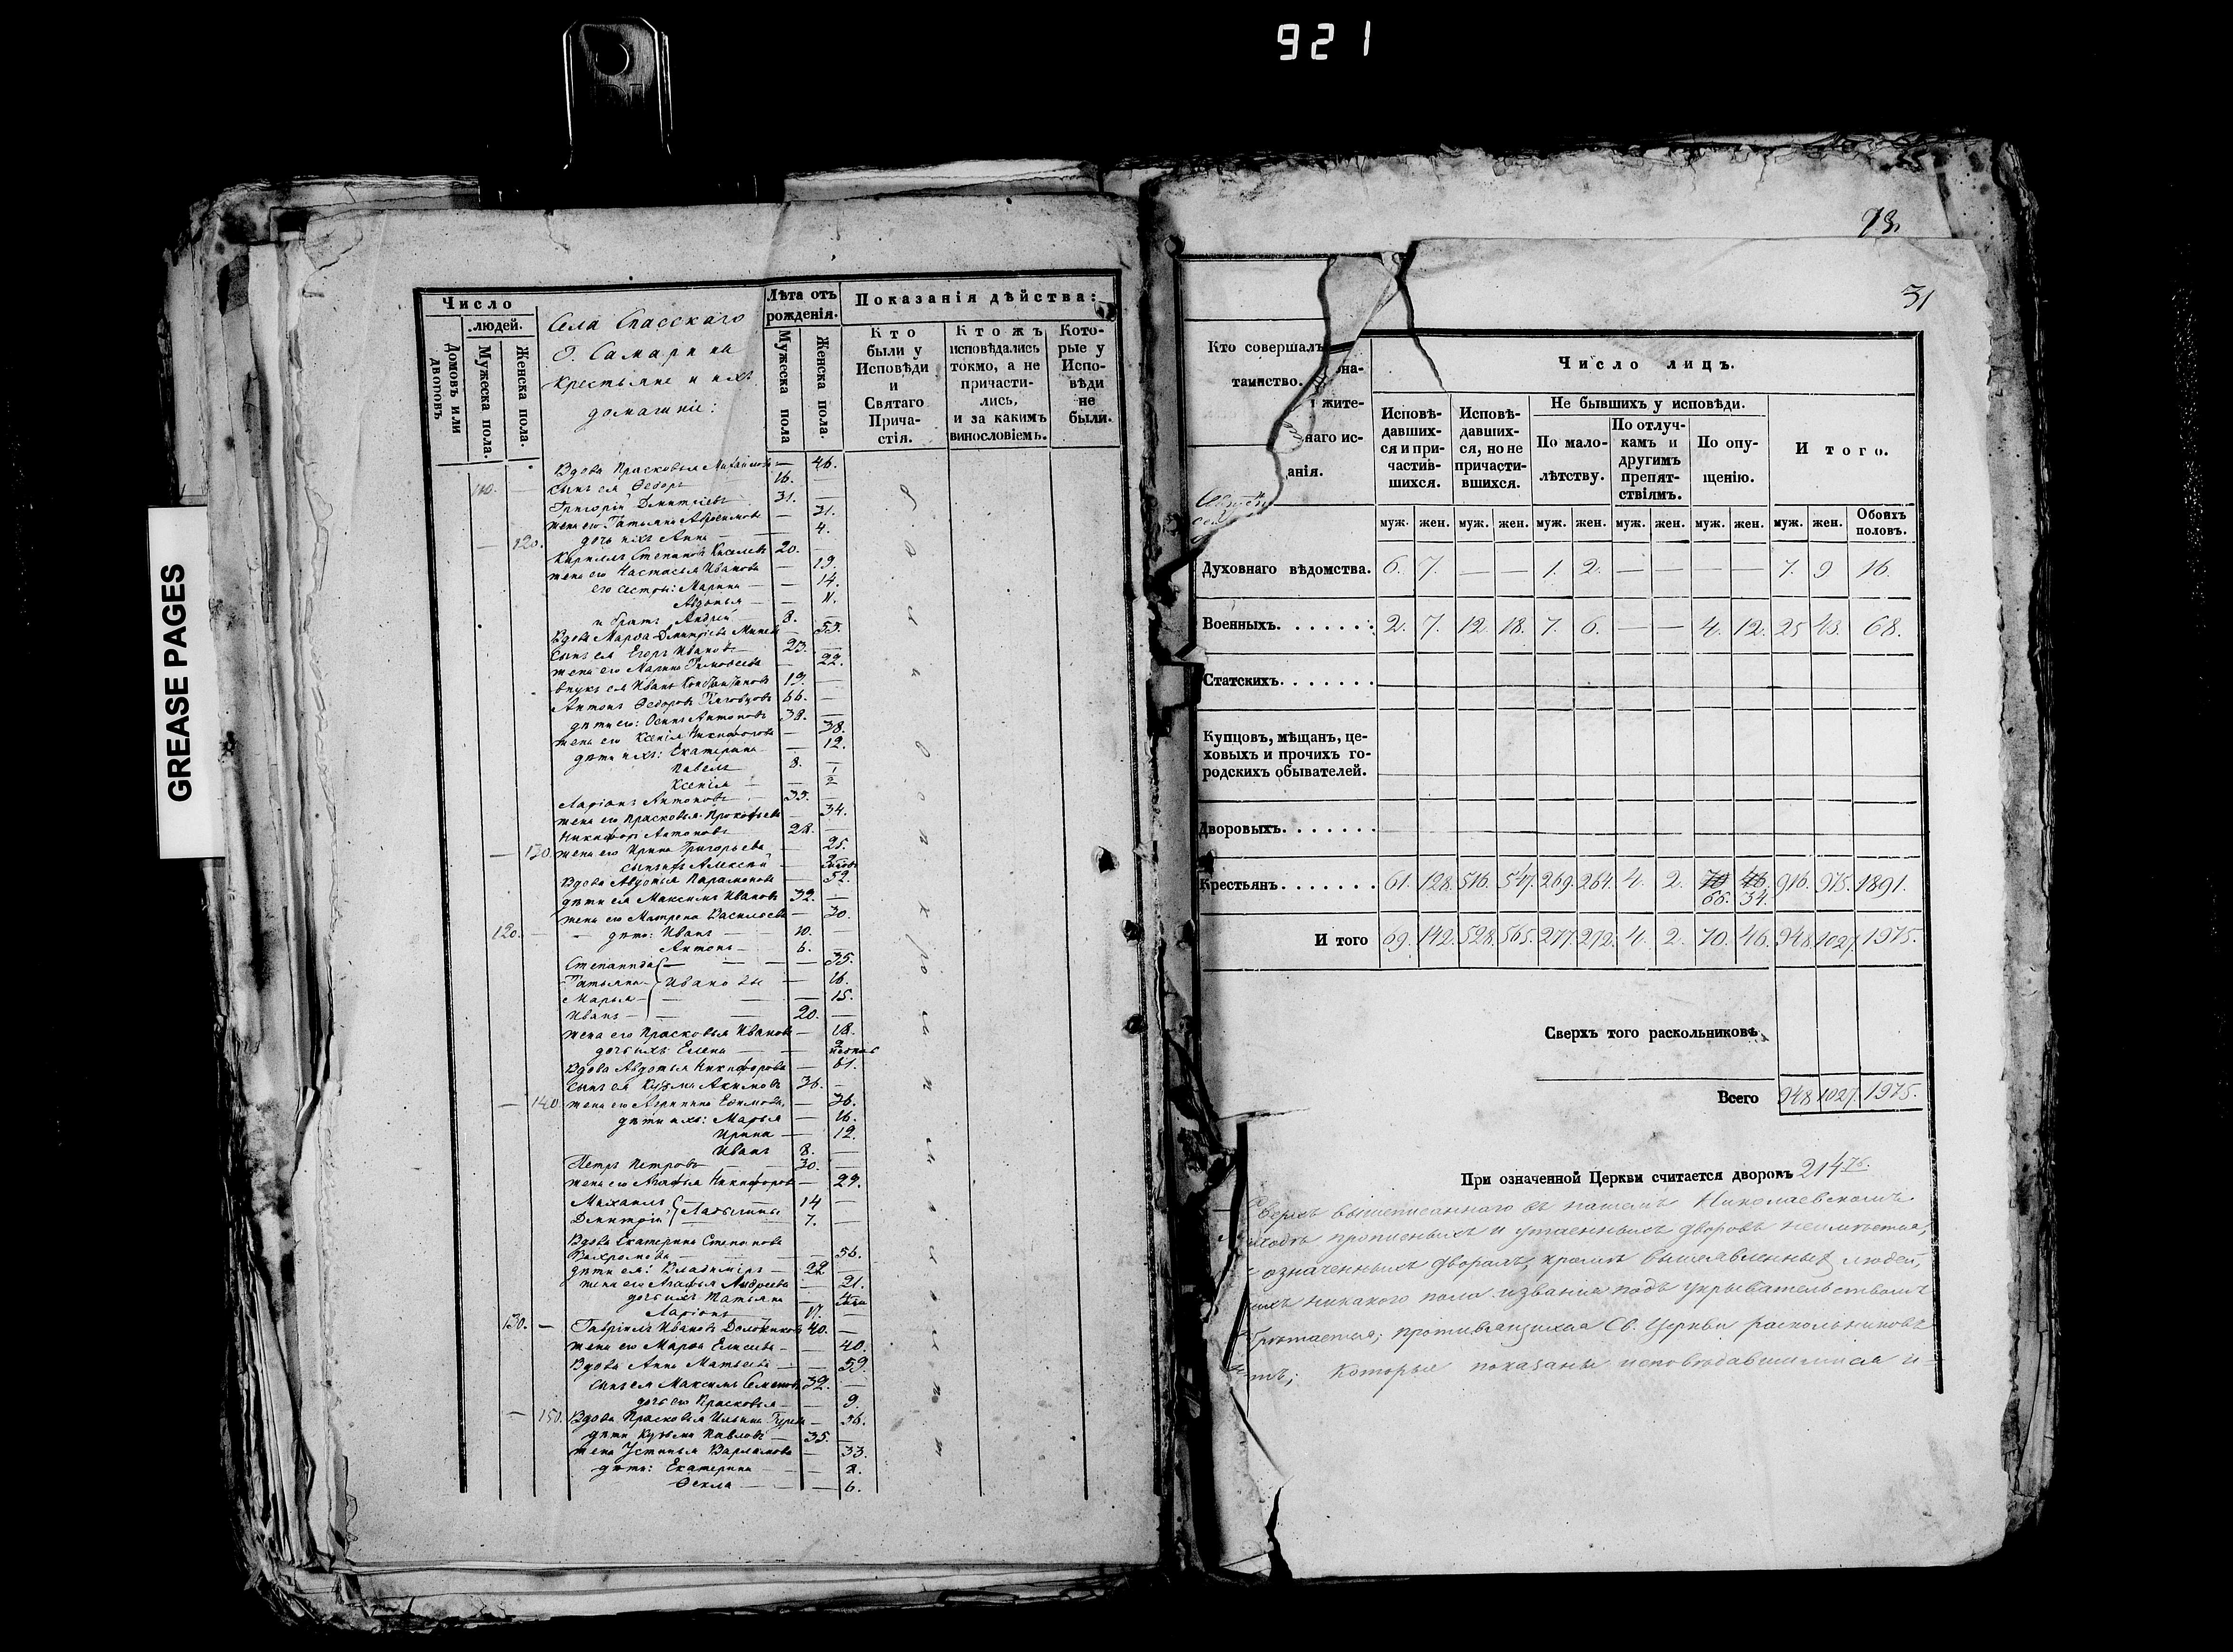 921
GREASE PAGES
Число
людей.
Домовъ или дворовъ
Мужеска пола.
Женска пола.
Села Спасскаго
Г. Самарина
крестьяне и ихъ
домашніе:
Лѣта отъ рожденія.
Мужеска пола
Женска пола.
Показанія дѣйства:
Кто были у Исповѣди и Святаго Причастія.
Ктожъ исповѣдались токмо, а не причастились, и за какимъ винословіемъ.
Которые у Исповѣди не были.
Вдова Прасковья — 46.
110. — сынъ ея Ѳедоръ 16. —
Григорій Дмитріевъ 31. —
жена его Татьяна — 31.
— 120. дочь ихъ Анна — 4.
Кириллъ Степановъ 20. —
жена его Настасья Иванова — 19.
его сестры: Марина — 14.
Авдотья — 11.
и братъ Андрей 8. —
Вдова Марѳа Дмитріева — 55.
сынъ ея Егоръ Ивановъ 23. —
жена его Марина Тимоѳеева — 22.
внукъ ея Иванъ Константиновъ 19. —
Антонъ Ѳедоровъ 66. —
дѣти его: Осипъ Антоновъ 38. —
жена его Ксенія Никифорова — 38.
дѣти ихъ: Екатерина — 12.
Павелъ 8. —
Ксенія — 1/2
Ларіонъ Антоновъ 35. —
жена его Прасковья Прокофьева — 34.
Никифоръ Антоновъ 28. —
— 130. жена его Ирина Григорьева — 25.
сынъ ихъ Алексѣй
Вдова Авдотья Парамонова — 52.
дѣти ея Максимъ Ивановъ 32. —
жена его Матрена Васильева — 30.
120. — дѣти: Иванъ 10. —
Антонъ 6. —
Степанида — 35.
Татьяна — Ивановы — 16.
Марья — 15.
Иванъ — 20. —
жена его Прасковья Иванова — 18.
дочь ихъ Елена —
Вдова Авдотья Никифорова — 61.
сынъ ея Кузма Акимовъ 36. —
— 140. жена его Агрипина Ефимова — 36.
дѣти ихъ: Марья — 16.
Ирина — 12.
Иванъ 8. —
Петръ Петровъ 30. —
жена его Агафья Никифорова — 29.
Михаилъ 14 —
Дмитрій 7. —
Вдова Екатерина Степанова
— 56.
дѣти ея: Владиміръ 22 —
жена его Агафья Андреева — 21.
дочь ихъ Татьяна —
Ларіонъ 17. —
130. — Гавріилъ Ивановъ 40. —
жена его Марѳа Елисеева — 40.
Вдова Анна Матвѣева — 59.
сынъ ея Максимъ Семеновъ 32. —
дочь его Прасковья — 9.
— 150. Вдова Прасковья Ильина — 56.
дѣти Кузьма Павловъ 35. —
жена Устинья Варламова — 33.
дѣти: Екатерина — 2.
Ѳекла — 6.
73.
31
Кто совершалъ
таинство.
жите-
наго ис-
анія.
Число лицъ.
Исповѣдавшихся и причастившихся.
Исповѣдавшихся, но не причастившихся.
Не бывшихъ у исповѣди.
По малолѣтству.
По отлучкамъ и другимъ препятствіямъ.
По опущенію.
Итого.
муж. жен. муж. жен. муж. жен. муж. жен. муж. жен. муж. жен. Обоихъ половъ.
Духовнаго вѣдомства. 6. 7. — — 1. 2. — — — — 7. 9 16.
Военныхъ. 2. 7. 12. 18. 7. 6. — — 4. 12. 25 43. 68.
Статскихъ.
Купцовъ, мѣщанъ, це-
ховыхъ и прочихъ го-
родскихъ обывателей.
Дворовыхъ.
Крестьянъ. 61. 128. 516. 547. 269. 264. 4. 2. 70 46. 916. 975. 1891.
66. 34.
И того 69. 142. 528. 565. 277. 272. 4. 2. 70. 46. 948. 1027. 1975.
Сверхъ того раскольниковъ
Всего 948 1027. 1975.
При означенной Церкви считается дворовъ 214
Сверхъ вышеписаннаго въ нашемъ Николаевскомъ
приходѣ прописныхъ и утаенныхъ дворовъ неимѣется,
означенныхъ дворахъ, кромѣ вышеявленныхъ людей,
никакого пола и званія подъ укрывательствомъ
противящихся Св. Церкви раскольниковъ
которые показаны исповѣдавшимися и